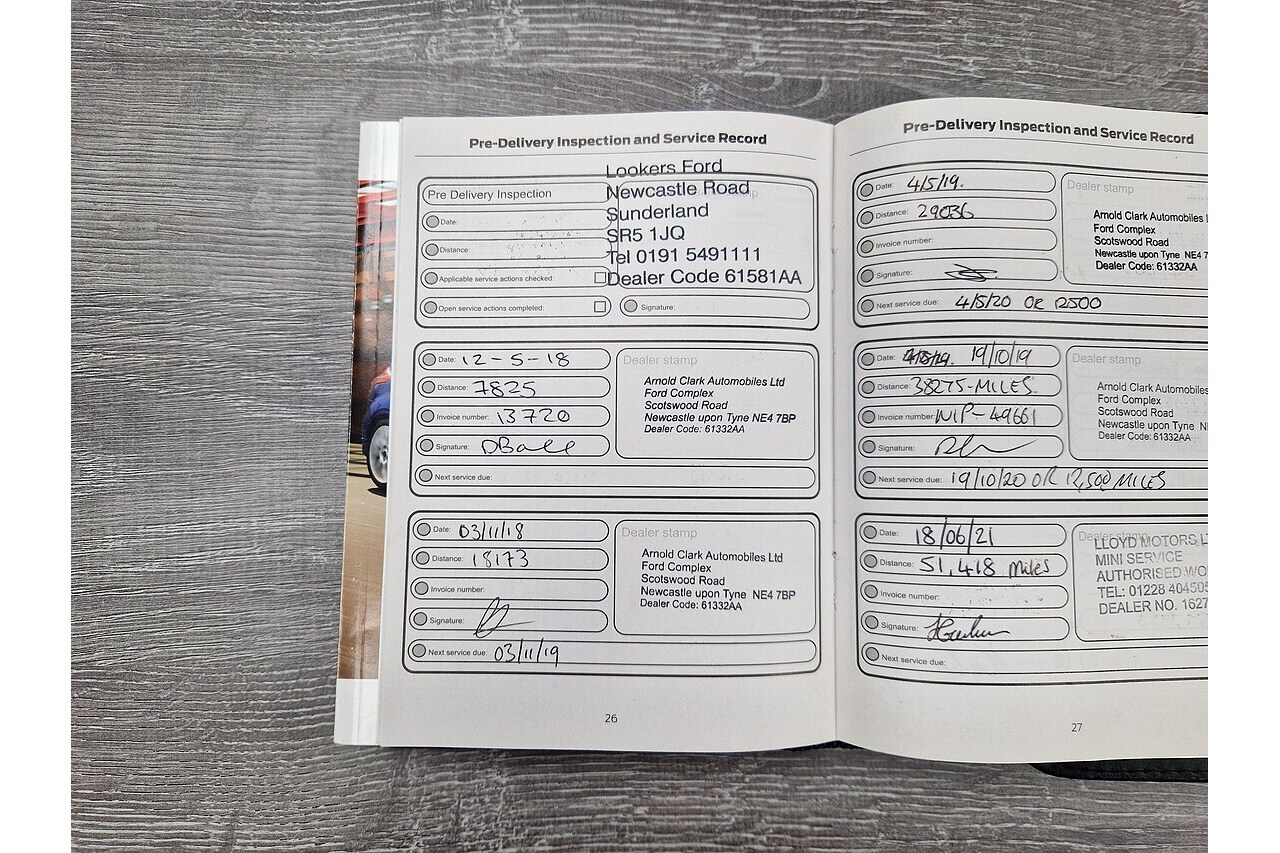 Pre-Delivery Inspection and Service Record
Lookers Ford
Newcastle Road
Sunderland
SR5 1JQ
Tel 0191 5491111
Dealer Code 61581AA
Pre Delivery Inspection
Date:
Distance:
Applicable service actions checked:
Open service actions completed:
Signature:
Date: 12-5-18
Distance: 7825
Invoice number: 13720
Signature: DBall
Next service due:
Dealer stamp
Arnold Clark Automobiles Ltd
Ford Complex
Scotswood Road
Newcastle upon Tyne NE4 7BP
Dealer Code: 61332AA
Date: 03/11/18
Distance: 18173
Invoice number:
Signature:
Next service due: 03/11/19
Dealer stamp
Arnold Clark Automobiles Ltd
Ford Complex
Scotswood Road
Newcastle upon Tyne NE4 7BP
Dealer Code: 61332AA
26
Pre-Delivery Inspection and Service Record
Date: 4/5/19.
Distance: 29036
Invoice number:
Signature:
Next service due: 4/5/20 OR 12500
Dealer stamp
Arnold Clark Automobiles
Ford Complex
Scotswood Road
Newcastle upon Tyne NE4 7
Dealer Code: 61332AA
Date: 19/10/19
Distance: 38275-MILES
Invoice number: WIP-49661
Signature:
Next service due: 19/10/20 OR 12,500 MILES
Dealer stamp
Arnold Clark Automobiles
Ford Complex
Scotswood Road
Newcastle upon Tyne
Dealer Code: 61332AA
Date: 18/06/21
Distance: 51,418 Miles
Invoice number:
Signature:
Next service due:
Dealer stamp
LLOYD MOTORS
MINI SERVICE
AUTHORISED
TEL: 01228 404505
DEALER NO. 1627
27